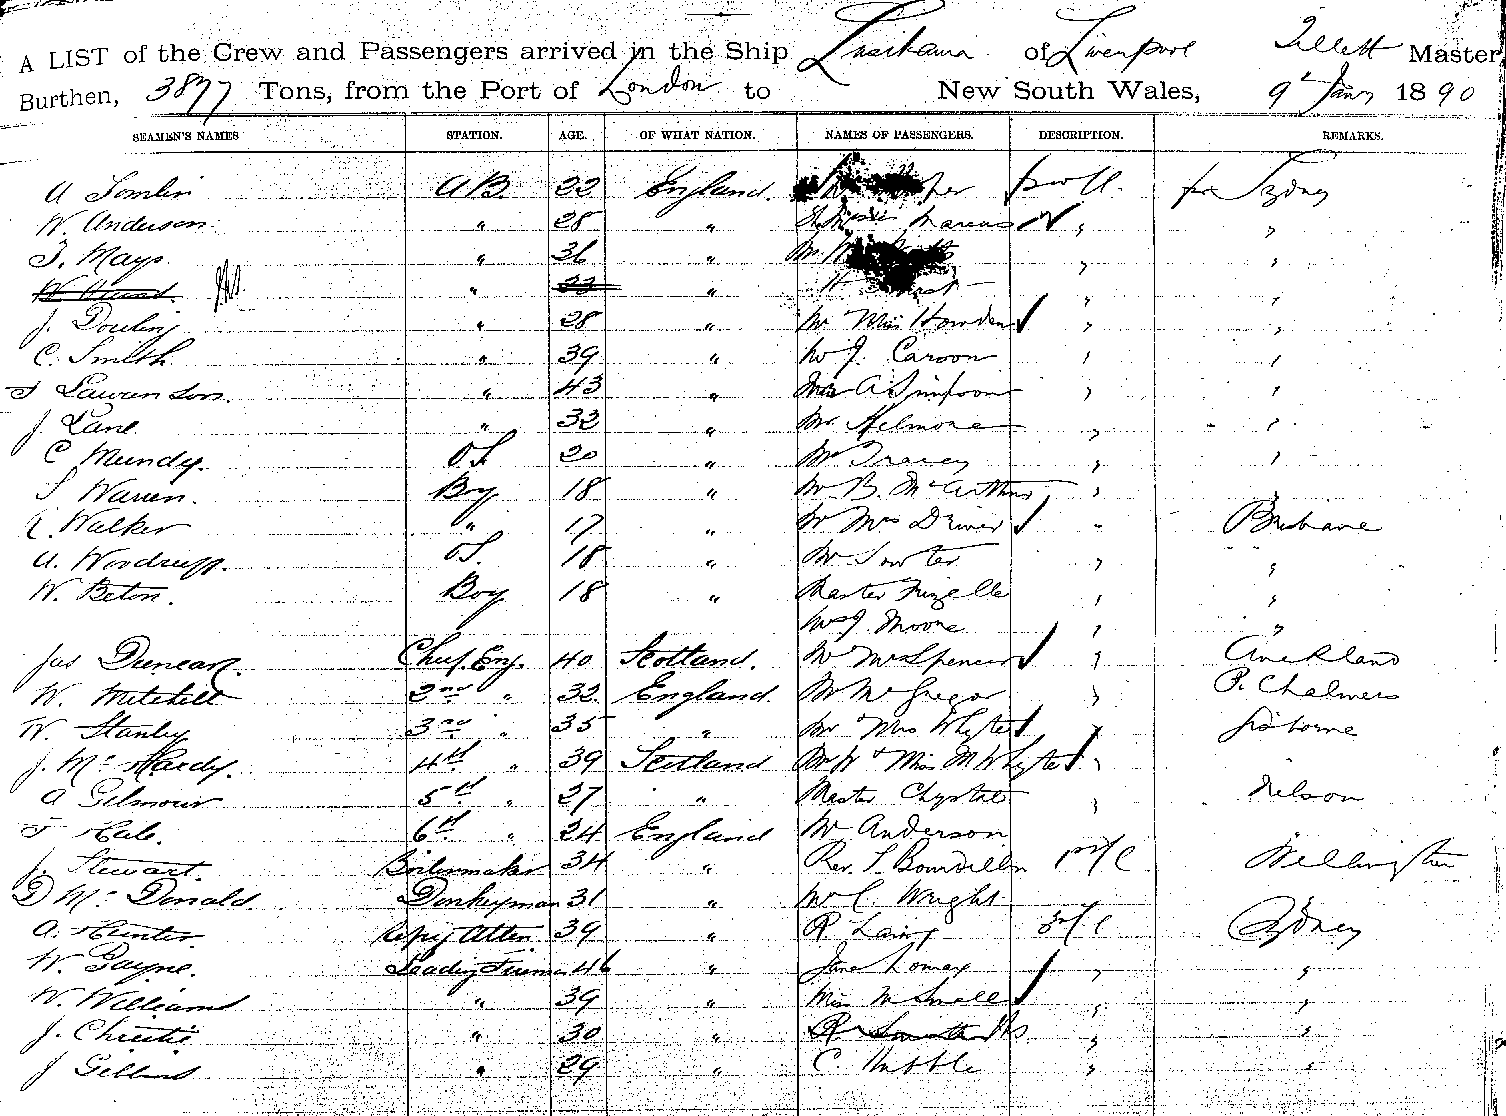 A LIST of the Crew and Passengers arrived in the Ship Lusitania of Liverpool Tillett Master,
Burthen, 3877 Tons, from the Port of London to New South Wales, 9th Jany 1890
SEAMEN'S NAMES STATION. AGE. OF WHAT NATION. NAMES OF PASSENGERS. DESCRIPTION. REMARKS.
A Tomlin AB. 22 England. for Sydney
W. Anderson. " 28 " " "
T. Mays. " 36 " " "
" 23 " " "
J. Dowling " 28 " Mr Miss Howden " "
C. Smith. " 39 " Mr J. Caroon " "
T Lawrenson. " 43 " A Simpson " "
J. Lane " 32 " Mr Helmore " "
C Mundy. OS 20 " Mr Tracey " "
S Warren. Boy 18 " Mr B. McArthur " "
Walker " 17 " Mr Mrs Driver " Brisbane
A. Woodruff. OS. 18 " Mr Sowter " "
W. Beton. Boy 18 " Master Nizelle " "
Moore " "
Jas Duncan. Chief Eng. 40 Scotland. Mr Mrs Spencer " Auckland
W. Mitchell 2nd " 32 England. Mr McGregor " P. Chalmers
W. Stanley 3rd " 35 " Mr Mrs Whyte " Gisborne
J. McHardy. 4th " 39 Scotland Mr W & Miss M Whyte "
A Gilmour 5th " 27 " Master " Nelson
T Hale. 6th " 24 England Mr Anderson
J. Stewart. Boilermaker 34 " Rev. Bourdillon Wellington
D McDonald. Donkeyman 31 " Mr C. Wright
A. Hunter. 39 " R Laing Sydney
W. Payne. Leading Fireman 46 " Jane Lomax " "
W. Williams " 39 " Miss M Small " "
J. Christie " 30 " " "
J " 29 " C. Hubble " "